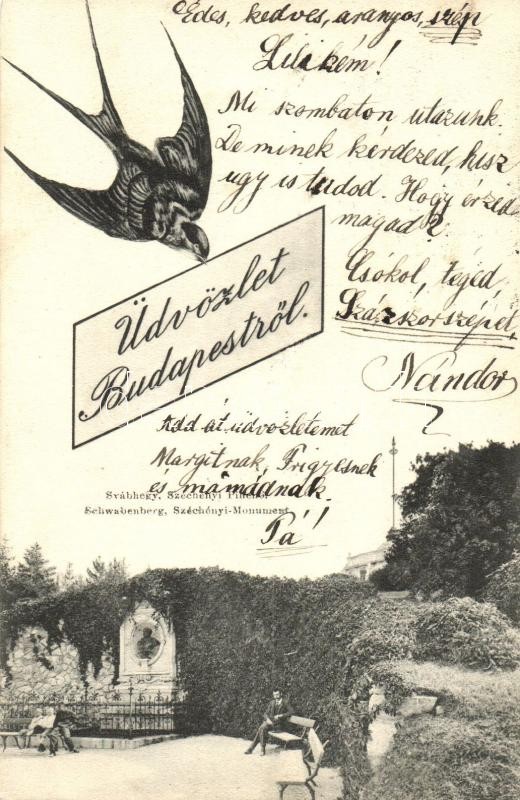 Édes, kedves, aranyos, szép
Lilikém!
Mi szombaton utazunk.
De minek kérdezed, hisz
ugy is tudod. Hogy érzed
magad?
Csókol, téged,
Százszorszépet,
Nándor
Üdvözlet
Budapestről.
Add át üdvözletemet
Margitnak, Frigyesnek
es mamádnak.
Svábhegy, Széchényi Pihenő.
Schwabenberg, Széchényi-Monument.
Pá!